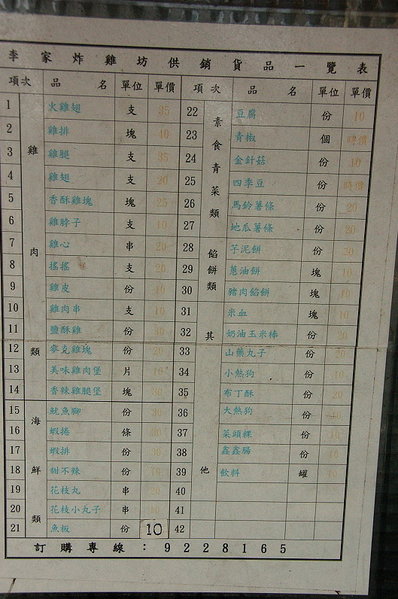 李家炸雞坊供銷貨品一覽表
項次 品名 單位 單價 項次 品名 單位 單價
1 火雞翅 支 35 22 豆腐 份 10
2 雞排 塊 23 青椒 個 時價
3 雞腿 支 35 24 金針菇 份 10
4 雞翅 支 20 25 四季豆 份 時價
5 香酥雞塊 塊 25 26 馬鈴薯條 份 20
6 雞脖子 支 10 27 地瓜薯條 份 20
7 雞心 串 20 28 芋泥餅 份
8 搖搖 支 20 29 蔥油餅 塊
9 雞皮 份 30 豬肉餡餅 塊
10 雞肉串 支 10 31 米血 塊 10
11 鹽酥雞 份 32 奶油玉米棒 份 20
12 麥克雞塊 份 20 33 山藥丸子 份
13 美味雞肉堡 片 34 小熱狗 份 10
14 香辣雞腿堡 塊 35 布丁酥 份 20
15 魷魚腳 份 36 大熱狗 份
16 蝦捲 條 37 菜頭粿 份
17 蝦排 份 38 鑫鑫腸 份 10
18 甜不辣 份 39 飲料 罐
19 花枝丸 串 20 40
20 花枝小丸子 串 41
21 魚板 份 10 42
雞肉類
海鮮類
素食青菜類
餡餅類
其他
訂購專線：9228165